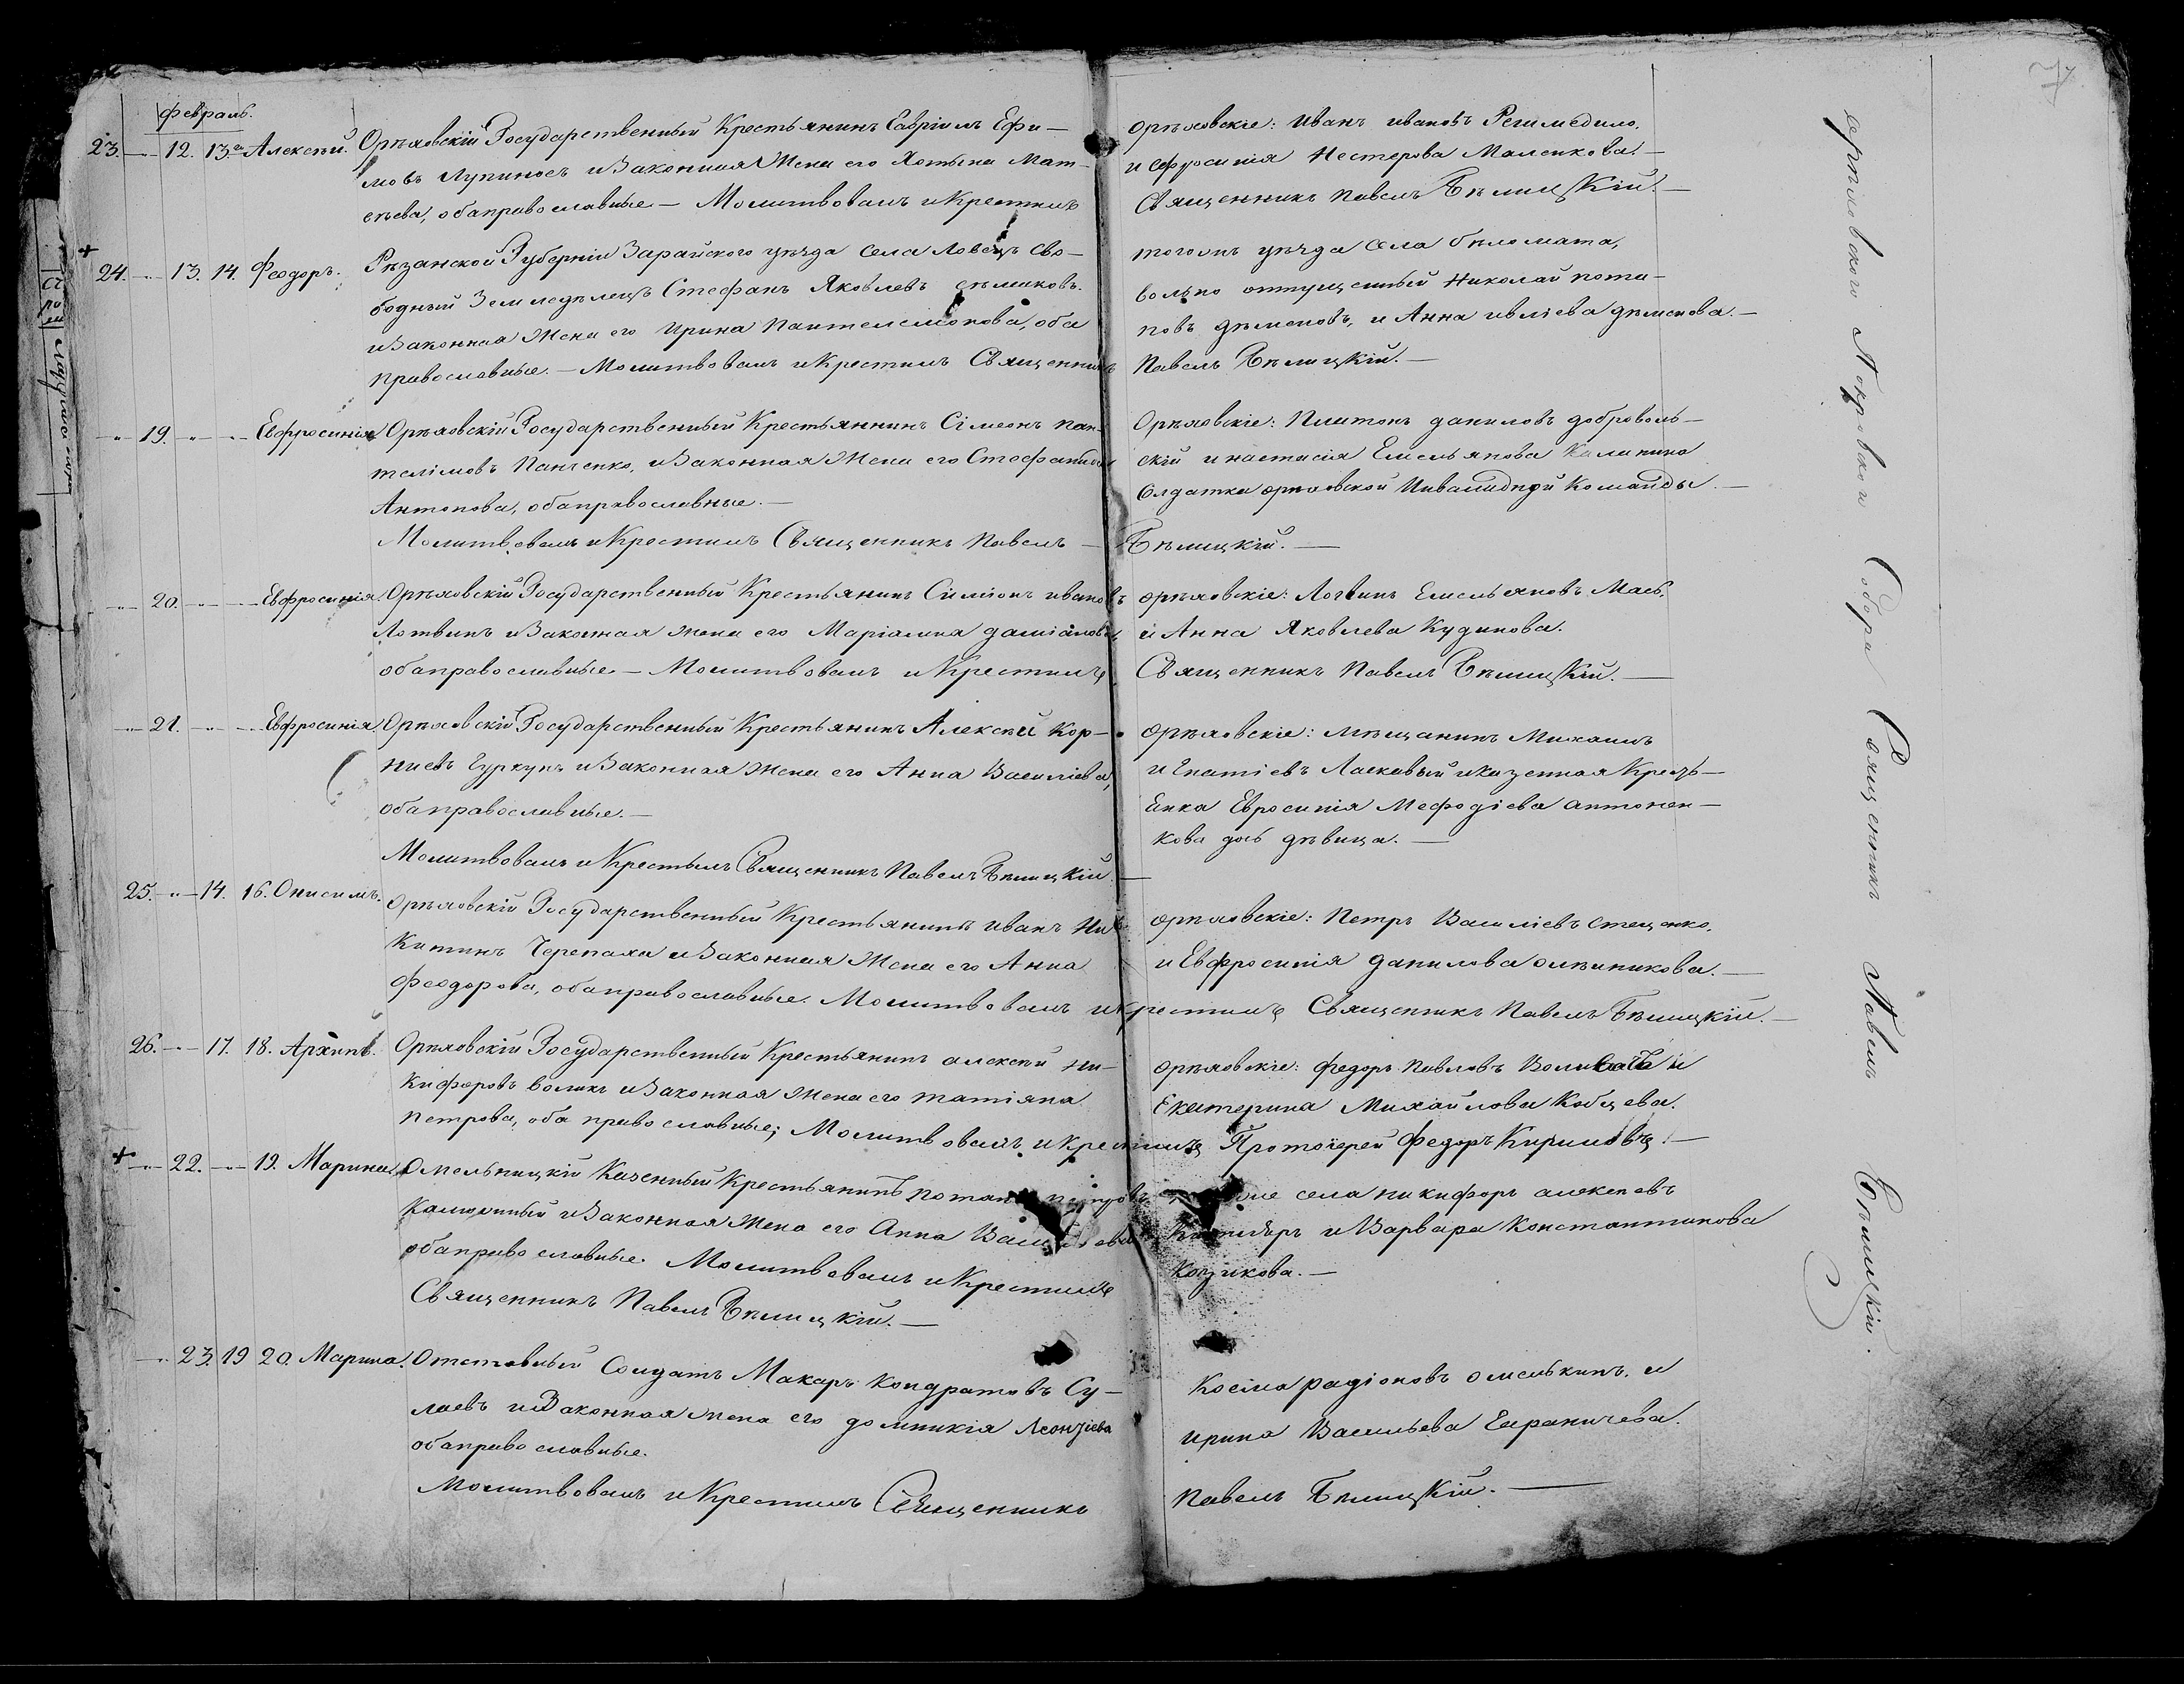 Февраль.
23. 12. 13го Алексѣй. Орѣховскій Государственный Крестьянинъ Гавріилъ Ефи-
мовъ Лупиносъ и Законная Жена его Хотина Мат-
ѳѣева, оба православные. — Молитвовалъ и Крестилъ
Орѣховскіе: Иванъ Ивановъ
и Ефросинія Нестерова Маленкова. —
Священникъ Павелъ Бѣлицкій. —
24. 13. 14. Феодоръ. Рязанской Губерніи Зарайского уѣзда села Ловецъ Сво-
бодный Земледѣлецъ Стефанъ Яковлевъ
и Законная Жена его Ирина Пантелемонова, оба
православные. — Молитвовалъ и Крестилъ Священникъ
тогожъ уѣзда села бѣломата,
вольно отпущенный Николай пота-
повъ и Анна
Павелъ Бѣлицкій. —
19. Евфросинія Орѣховскій Государственный Крестьянинъ Сімеонъ Пан-
телімовъ Панченко, и Законная Жена его Стефанида
Антонова, оба православные. —
Молитвовалъ и Крестилъ Священникъ Павелъ —
Орѣховскіе: Платонъ даниловъ доброволь-
скій и настасія Емельянова Калинина
Солдатка орѣховской Инвалидной Команды. —
Бѣлицкій. —
20. Евфросинія. Орѣховскій Государственный Крестьянинъ Симіонъ ивановъ
Логвинъ и Законная жена его Маріамна даміанова,
оба православные. — Молитвовалъ и Крестилъ
орѣховскіе: Логвинъ Емельяновъ Мась,
и Анна Яковлева Кудинова.
Священникъ Павелъ Бѣлицкій. —
21. Евфросинія. Орѣховскій Государственный Крестьянинъ Алексѣй Кор-
ніевъ и Законная жена его Анна Василіева,
оба православные. —
Молитвовалъ и Крестилъ Священникъ Павелъ Бѣлицкій. —
орѣховскіе: мѣщанинъ Михаилъ
Игнатіевъ Ласкавый и казенная Кресть-
янка Евросинія Меѳодіева антонен-
кова дочь дѣвица. —
25. 14. 16. Онисимъ. Орѣховскій Государственный Крестьянинъ иванъ Ни-
Китинъ Черепаха и Законная Жена его Анна
Феодорова, оба православные. Молитвовалъ и крестилъ Священникъ Павелъ Бѣлицкій. —
орѣховскіе: Петръ Василіевъ Стеценко,
и Евфросинія данилова олѣйникова. —
26. 17. 18. Архипъ. Орѣховскій Государственный Крестьянинъ алексѣй ни-
Кифоровъ воликъ и Законная Жена его татіяна
петрова, оба православные; Молитвовалъ и крестилъ Протоіерей Федоръ Кириловъ. —
орѣховскіе: Федоръ Павловъ и
Екатерина Михайлова Кобцева.
22. 19. Марина. Омельницкій Казенный Крестьянинъ потапъ
Калюжный и Законная Жена его Анна
оба православные. Молитвовалъ и Крестилъ
Священникъ Павелъ Бѣлицкій. —
села никифоръ алексѣевъ
и Варвара Константинова
Козикова. —
23. 19 20. Марина. Отставный Солдатъ Макаръ Кондратовъ Су-
лаевъ и Законная жена его домникія Леонтіева
оба православные.
Молитвовалъ и Крестилъ Священникъ
Косма радіоновъ омелькинъ. и
ирина Васильева
Павелъ Бѣлицкій. —
орѣховского Покровского Собора Священникъ Павелъ Бѣлицкій.